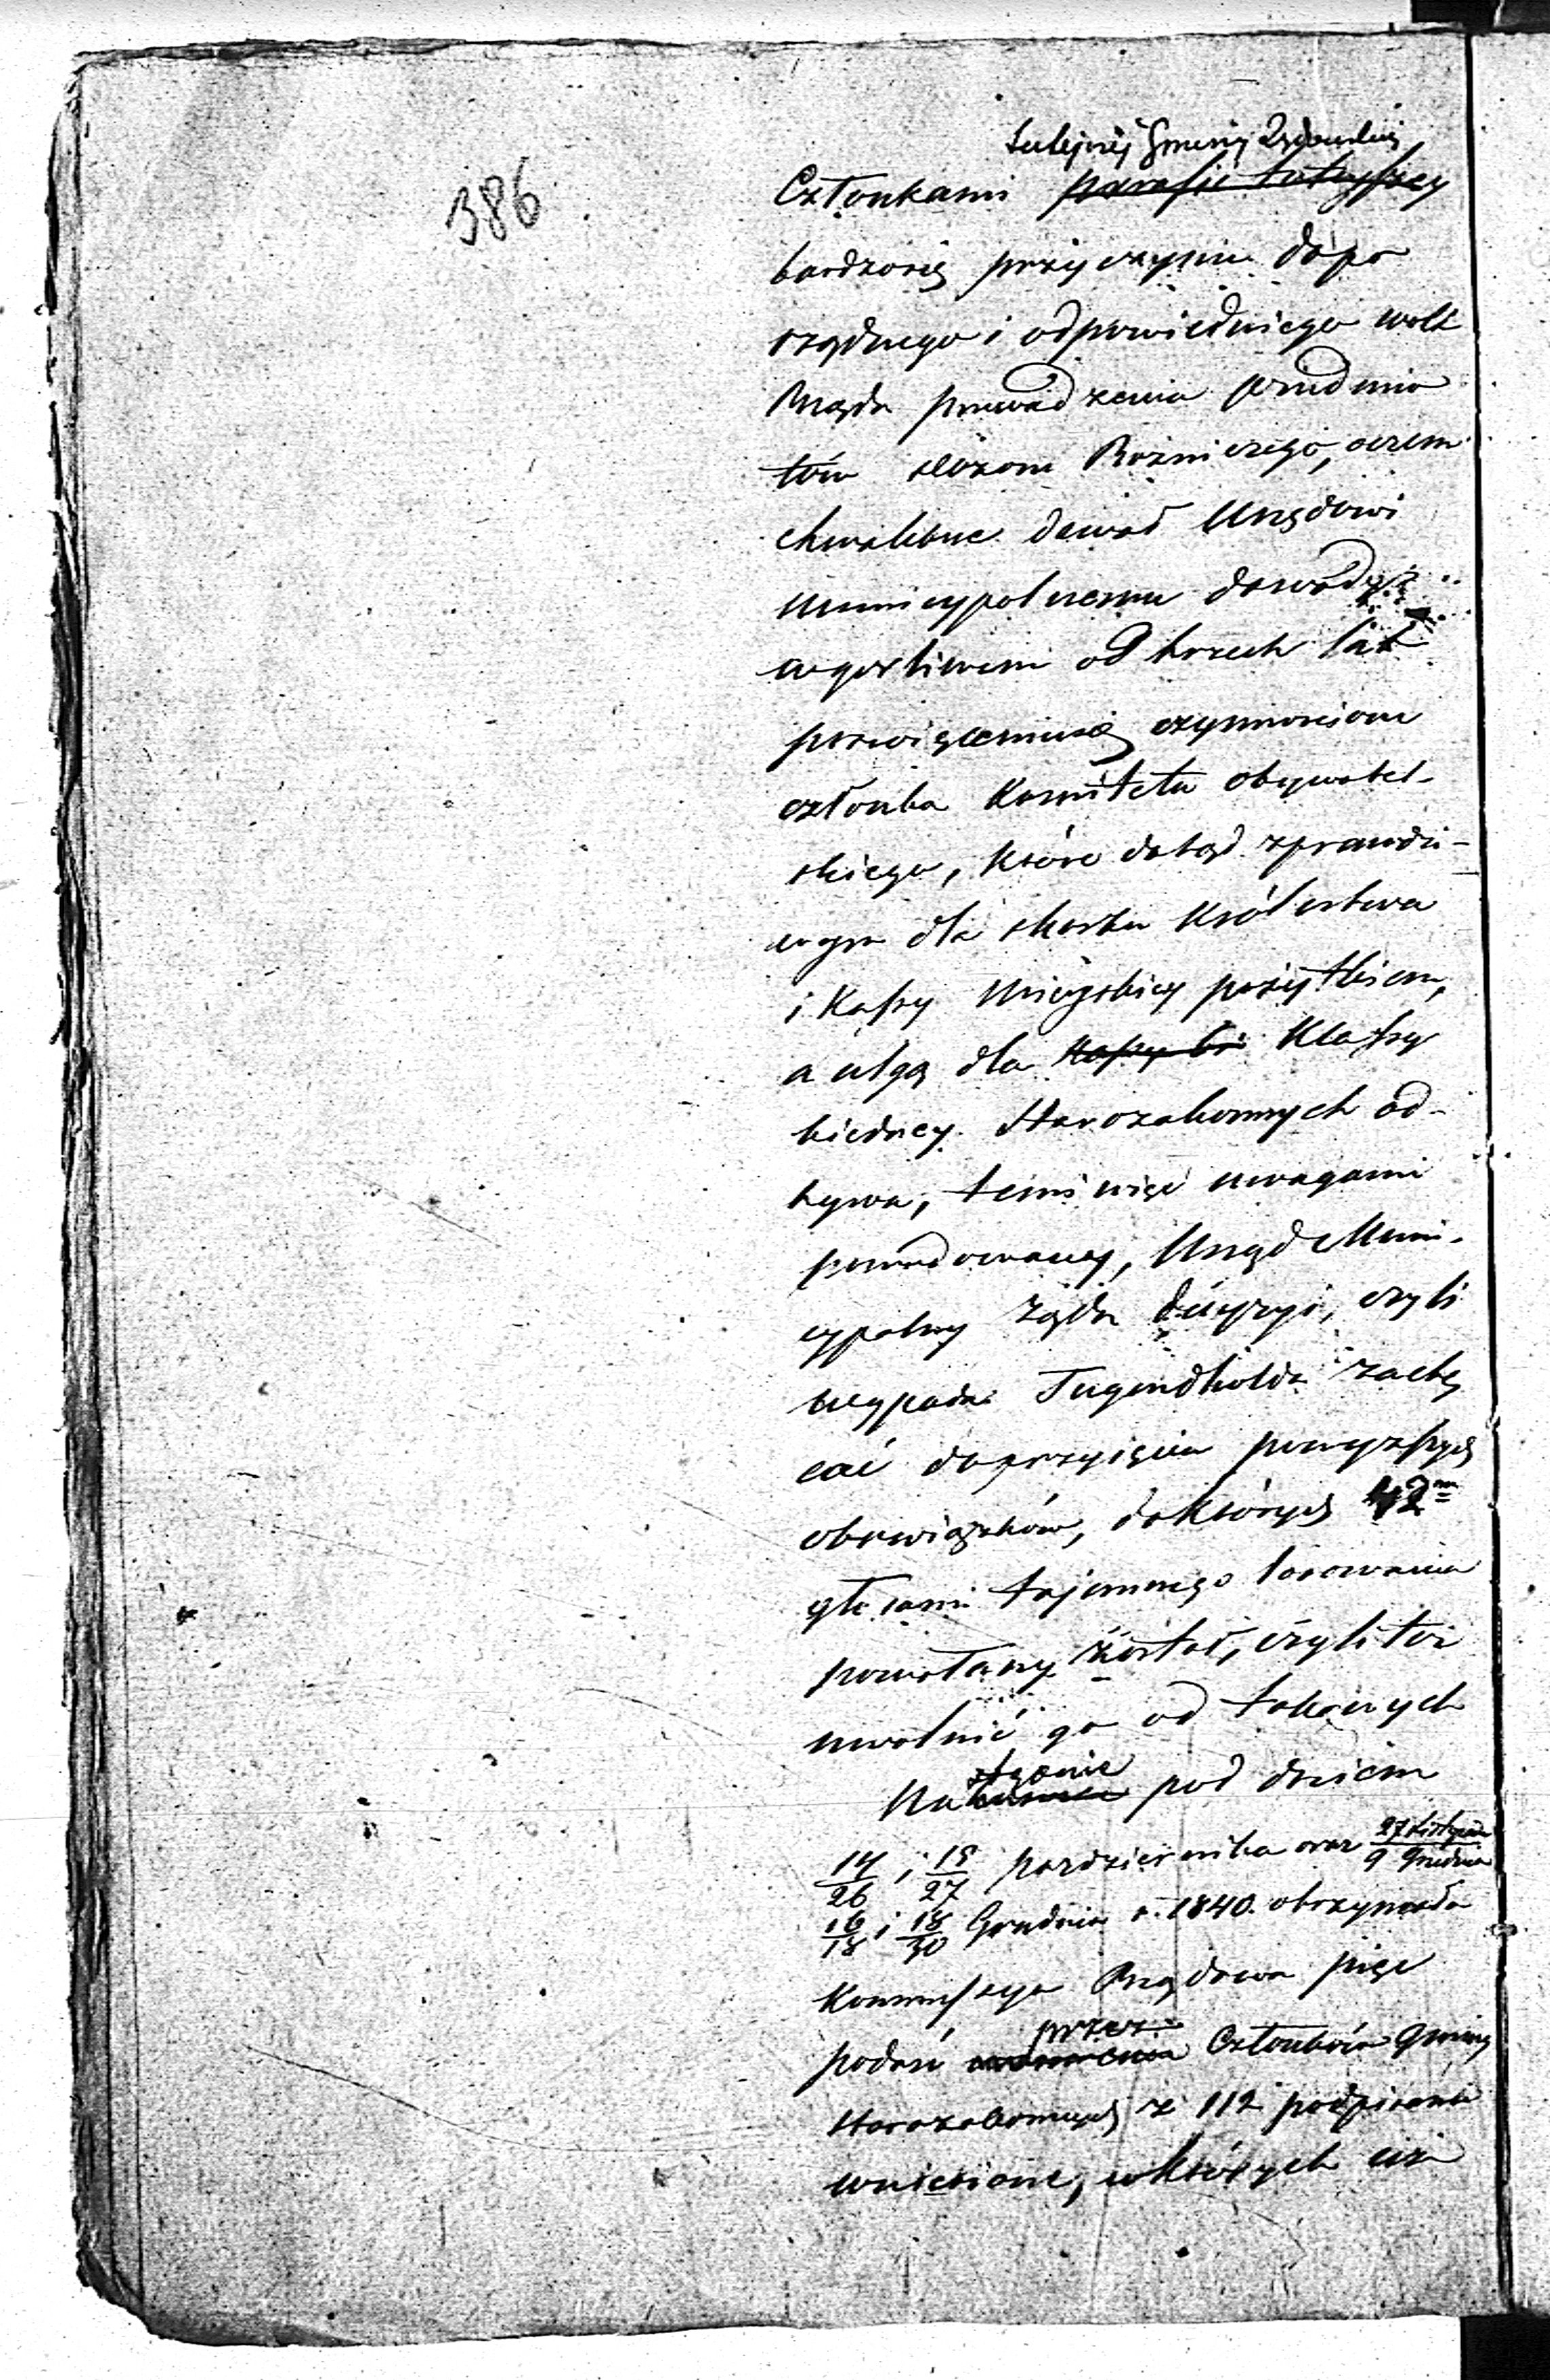 386
tutejszéj Gminy Żydowskiéj
Członkami parafii tutejszey
bardzosię przyczynia dopo
rządnego i odpowiedniego woli
Rządu prowadzenia fundusz
tów dozoru Bożniczego, oczem
chwalebne dawał Urzędowi
municypalnemu dowody
w gorliwem od trzech lat
poswięceniusię czynnosciom
członka Komitetu obywatel-
skiego, które dotąd zprawdzi-
wym dla skarbu Królestwa
i Kassy Mieyskiey pożytkiem,
a ulgą dla Klassy
biedney Starozakonnych od-
bywa; temi więc uwagami
powodowany, Urząd Muni-
cypalny żąda decyzyi, czyli
wypada Tugendholda zachę
cać doprzyięcia powyższych
obowiązków, doktórych 42m
głosami tajemnego losowania
powołany został, czyli też
uwolnić go od takowych
Następnie pod dniem
14/26 i 15/27 pazdziernika oraz 27 Listopada/9 Grudnia
16/18 i 18/30 Grudnia r. 1840. otrzymała
Kommissya Rządowa pięć
podań przez Członków Gminy
Starozakonnych z 112 podpisami
wniesione, wktórych ciż